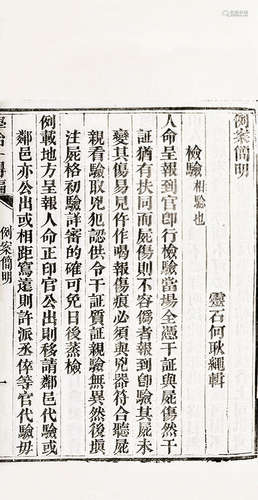 例案簡明
靈石何耿繩輯
檢驗相驗也
人命呈報到官即行檢驗當場全憑干証與屍傷然干
証猶有扶同而屍傷則不容僞者報到即驗其屍未
變其傷易見仵作喝報傷痕必須與兇器符合聽屍
親看驗取兇犯認供令干証質証親驗無異然後塡
注屍格初驗詳審的確可免日後蒸檢
例載地方呈報人命正印官公出則移請鄰邑代驗或
鄰邑亦公出或相距寫遠則許派丞倅等官代驗毋
例案簡明
一